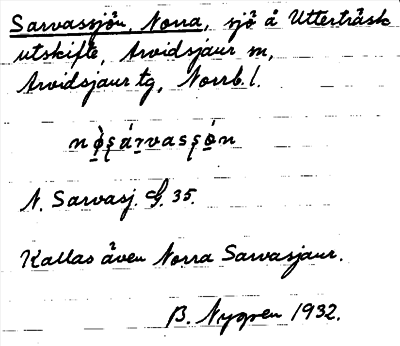 Sarvassjön, Norra, sjö å Utterträsk
utskifte, Arvidsjaur sn,
Arvidsjaur tg, Norrb. l.
N. Sarvasj. 35.
Kallas även Norra Sarvasjaur.
B. Nygren 1932.